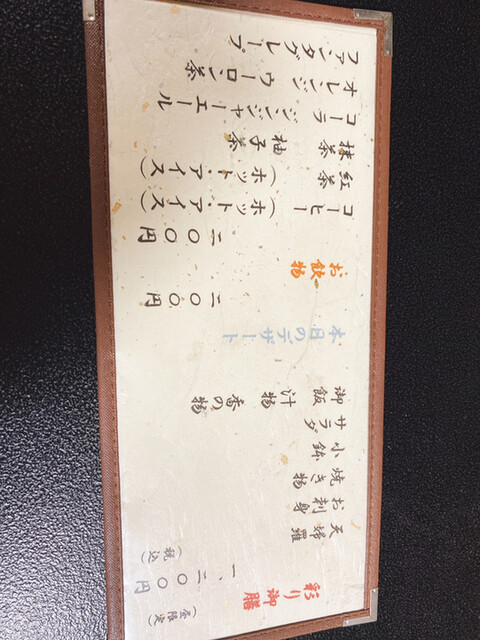 彩り御膳
(昼限定)
一、二〇〇円
(税込)
天婦羅
お刺身
焼き物
小鉢
サラダ
御飯 汁物 香の物
本日のデザート
二〇〇円
お飲物
二〇〇円
コーヒー (ホット・アイス)
紅茶 (ホット・アイス)
抹茶 柚子茶
コーラ ジンジャーエール
オレンジ ウーロン茶
ファンタグレープ